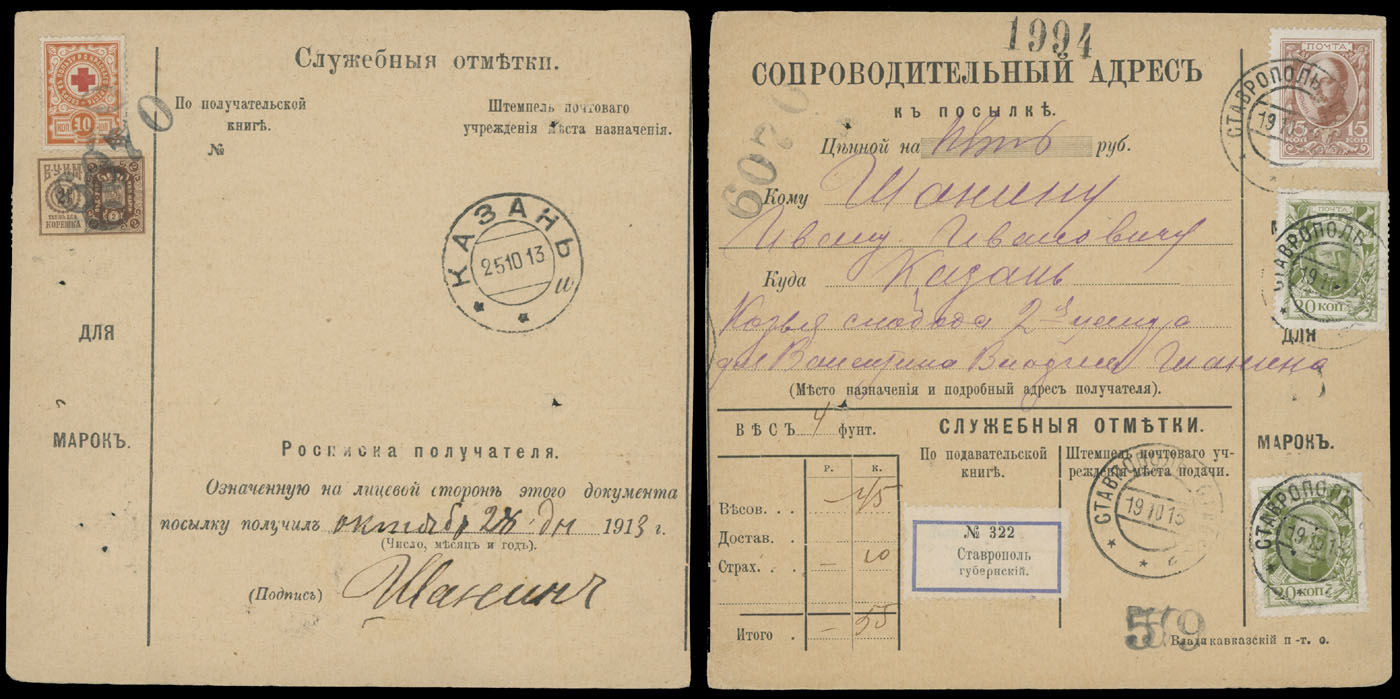 Служебныя отмѣтки.
По получательской
книгѣ.
№
Штемпель почтоваго
учрежденія мѣста назначенія.
10
КОП
2
КОРЕШКА
6070
КАЗАНЬ
25 10 13
ДЛЯ
МАРОКЪ.
Росписка получателя.
Означенную на лицевой сторонѣ этого документа
посылку получилъ октябр 28 дн 1913 г.
(Число, мѣсяцъ и годъ).
(Подпись) Шанинъ
1994
СОПРОВОДИТЕЛЬНЫЙ АДРЕСЪ
къ посылкѣ.
6070
Цѣнной на пять руб.
Кому Шанину
Ивану Ивановичу
Куда Казань
слобода 2я улица
Шанина
(Мѣсто назначенія и подробный адресъ получателя).
ВѢСЪ 4 фунт.
СЛУЖЕБНЫЯ ОТМѢТКИ.
По подавательской
книгѣ.
Штемпель почтоваго уч-
режденія мѣста подачи.
Р. К.
Вѣсов. . . – 45
Достав.
Страх. . . – 10
Итого . – 55
№ 322
Ставрополь
губернскій.
СТАВРОПОЛЬ
19 10 13
Владикавказскій п.-т. о.
ПОЧТА
15 КОП 15
СТАВРОПОЛЬ
ПОЧТА
СТАВРОПОЛЬ
20 КОП
ДЛЯ
МАРОКЪ.
СТАВРОПОЛЬ
19 10 13
20 КОП